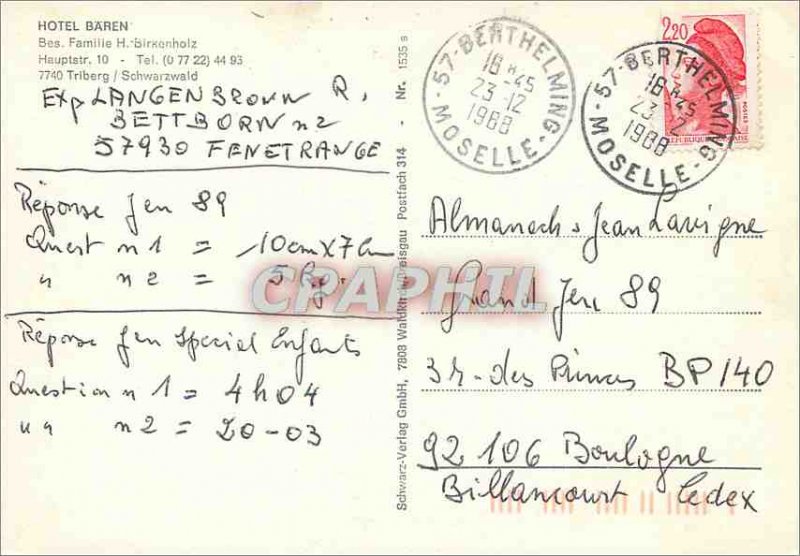 HOTEL BÄREN
Bes. Familie H. Birkenholz
Hauptstr. 10 - Tel. (0 77 22) 44 93
7740 Triberg / Schwarzwald
Exp LANGENBRONN R.
BETTBORN n2
57930 FENETRANGE
Réponse Jeu 89
Quest n 1 = 10cm x 7cm
" n 2 = 5 Kg.
Réponse Jeu Special Enfants
Question n 1 = 4h04
" " n 2 = 20-03
Schwarz-Verlag GmbH, 7808 Waldkirch/Breisgau Postfach 314 - Nr. 1535 s
57-BERTHELMING-
18 H -45
23-12
1988
MOSELLE
2,20
57-BERTHELMING-
18 H 45
23-12
1988
MOSELLE
Almanachs Jean Lavigne
Grand Jeu 89
3 r-des Princes BP 140
92 106 Boulogne
Billancourt Cedex
CPAPHIL